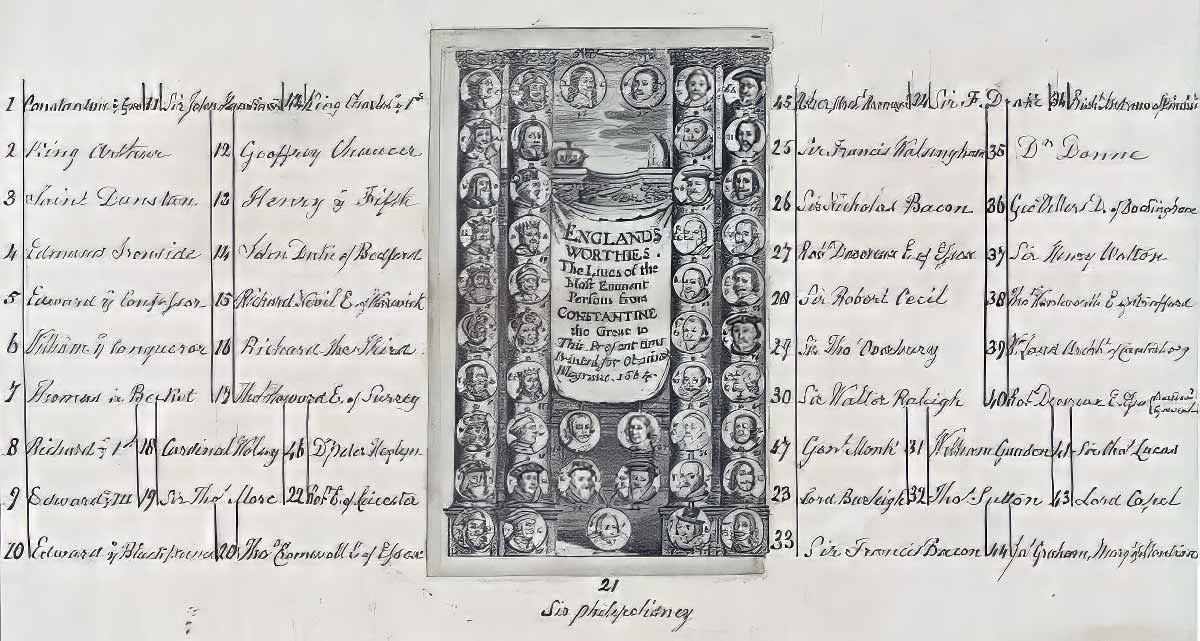 1 Constantine ÿ Great 11 Sir John 42 King Charles ÿ 1st
2 King Arthur 12 Geoffrey Chaucer
3 Saint Dunstan 13 Henry ÿ Fifth
4 Edmund Ironside 14 John Duke of Bedford
5 Edward ÿ Confessor 15 Richard Nevil E. of Warwick
6 William ÿ Conqueror 16 Richard the Third
7 Thomas à Becket 17 Thos Hayward E. of Surrey
8 Richard ÿ 1st 18 Cardinal Wolsey 46 Dr Peter Heylyn
9 Edward ÿ III 19 Sir Thos More 22 Robt E. of Leicester
10 Edward ÿ Black Prince 20 Thos Cromwell E. of Essex
ENGLANDS
WORTHIES.
The Lives of the
Most Eminent
Persons from
CONSTANTINE
the Great to
This Present time
Printed for Obadiah
Blagrave. 1684.
45 24 Sir F. Drake 34
25 Sir Francis Walsingham 35 Dr Donne
26 Sir Nicholas Bacon 36 Geo Villers D. of Buckingham
27 Robt Devereux E. of Essex 37 Sir Henry Wotton
28 Sir Robert Cecil 38 Thos Wentworth E. of Strafford
29 Sir Thos Overbury 39 Wm Laud Archbt of Canterbury
30 Sir Walter Raleigh 40 Robt Devereux E. Essex
47 Genl Monk 31 William Camden 41 Sir Thos Lucas
23 Lord Burleigh 32 Thos Sutton 43 Lord Capel
33 Sir Francis Bacon 44 Jas Graham, Marq of
21
Sir philip sidney